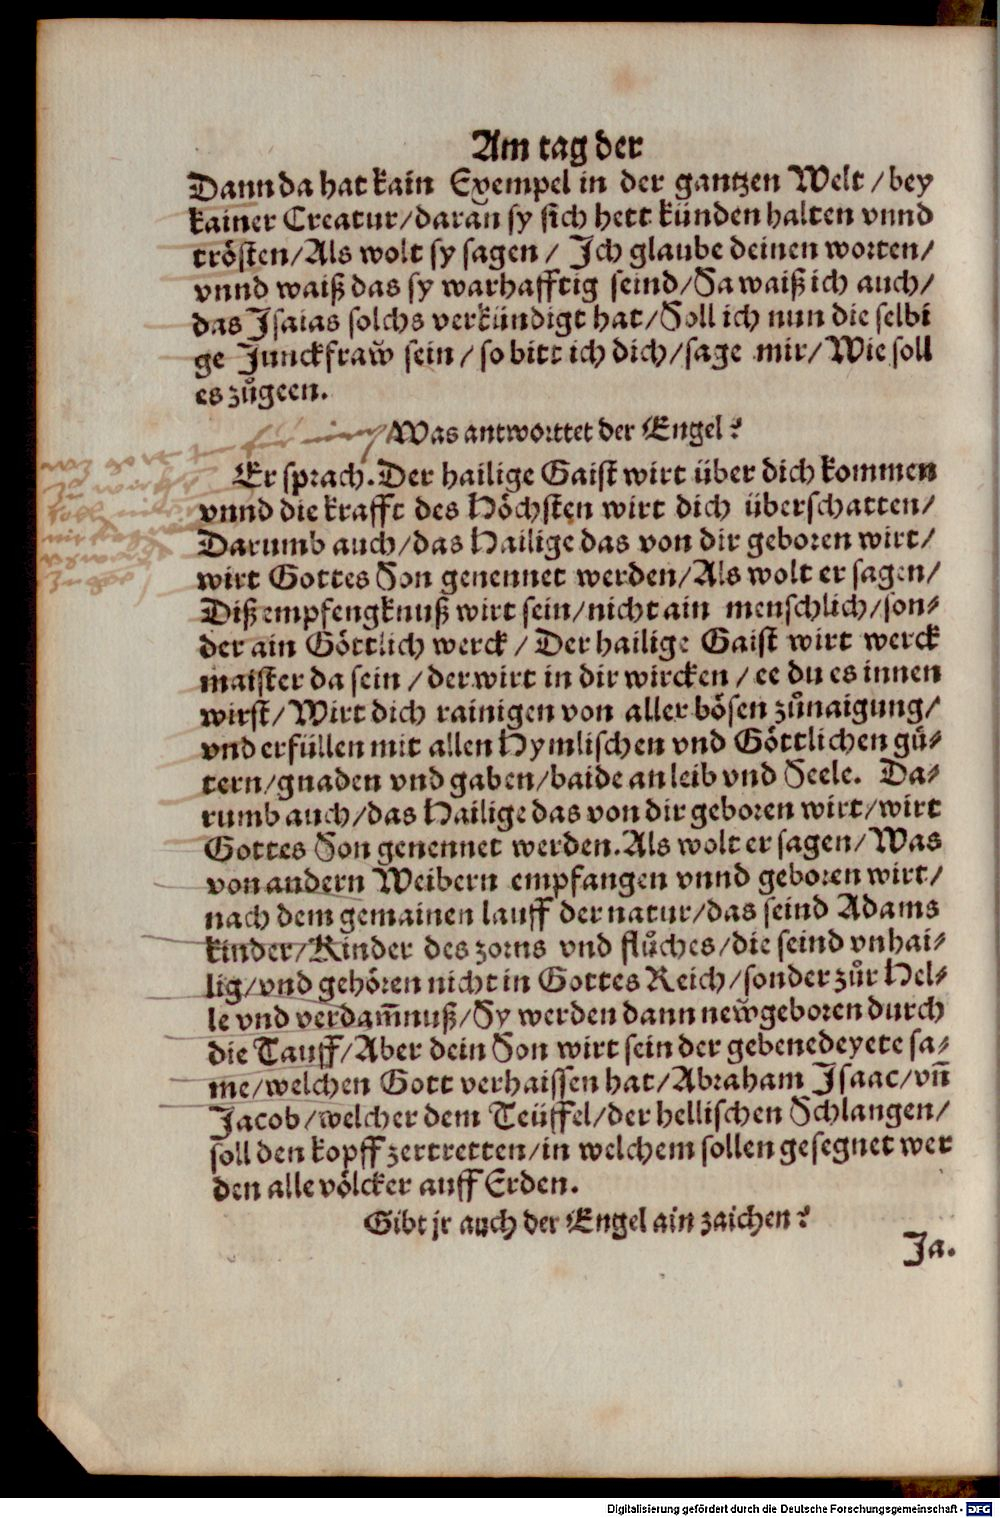 Am tag der
Dann da hat kain Exempel in der gantzen Welt / bey
kainer Creatur/daran sy sich hett künden halten vnnd
trösten/Als wolt sy sagen / Ich glaube deinen worten/
vnnd waiß das sy warhafftig seind/Sa waiß ich auch/
das Isaias solchs verkündigt hat/Soll ich nun die selbi
ge Junckfraw̆ sein / so bitt ich dich/sage mir/ Wie soll
es zůgeen.
Was antworttet der Engel?
Er sprach. Der hailige Gaist wirt über dich kommen
vnnd die krafft des Höchsten wirt dich überschatten/
Darumb auch/das Hailige das von dir geboren wirt/
wirt Gottes Son genennet werden/Als wolt er sagen/
Diß empfengknuß wirt sein/nicht ain menschlich/son-
der ain Göttlich werck / Der hailige Gaist wirt werck
maister da sein / der wirt in dir wircken / ee du es innen
wirst/ Wirt dich rainigen von aller bösen zůnaigung/
vnd erfüllen mit allen Hymlischen vnd Göttlichen gů-
tern/gnaden vnd gaben/baide an leib vnd Seele. Da-
rumb auch/das Hailige das von dir geboren wirt/wirt
Gottes Son genennet werden. Als wolt er sagen/ Was
von andern Weibern empfangen vnnd geboren wirt/
nach dem gemainen lauff der natur/das seind Adams
kinder/Kinder des zorns vnd flůches/die seind vnhai-
lig/vnd gehören nicht in Gottes Reich/sonder zůr Hel-
le vnd verdam̄nuß/Sy werden dann new̆geboren durch
die Tauff/Aber dein Son wirt sein der gebenedeyete sa-
me/welchen Gott verhaissen hat/Abraham Isaac/vn̄
Jacob/welcher dem Teüffel/der hellischen Schlangen/
soll den kopff zertretten/in welchem sollen gesegnet wer
den alle völcker auff Erden.
Gibt jr auch der Engel ain zaichen?
Ja.
Digitalisierung gefördert durch die Deutsche Forschungsgemeinschaft - DFG